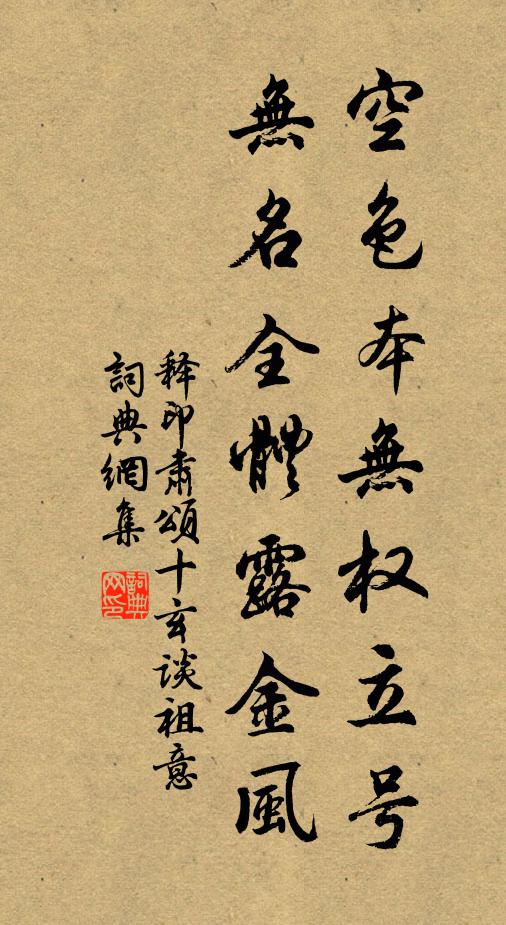 空色本無权立号
無名全體露金風
释印肃颂十玄谈祖意
詞典網集
詞典网印